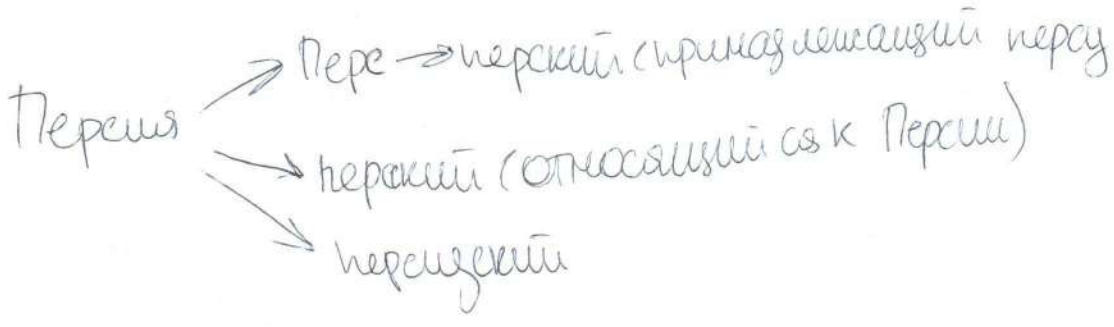 Перс → перский (принадлежащий персу
Персия
перский (относящийся к Персии)
персидский